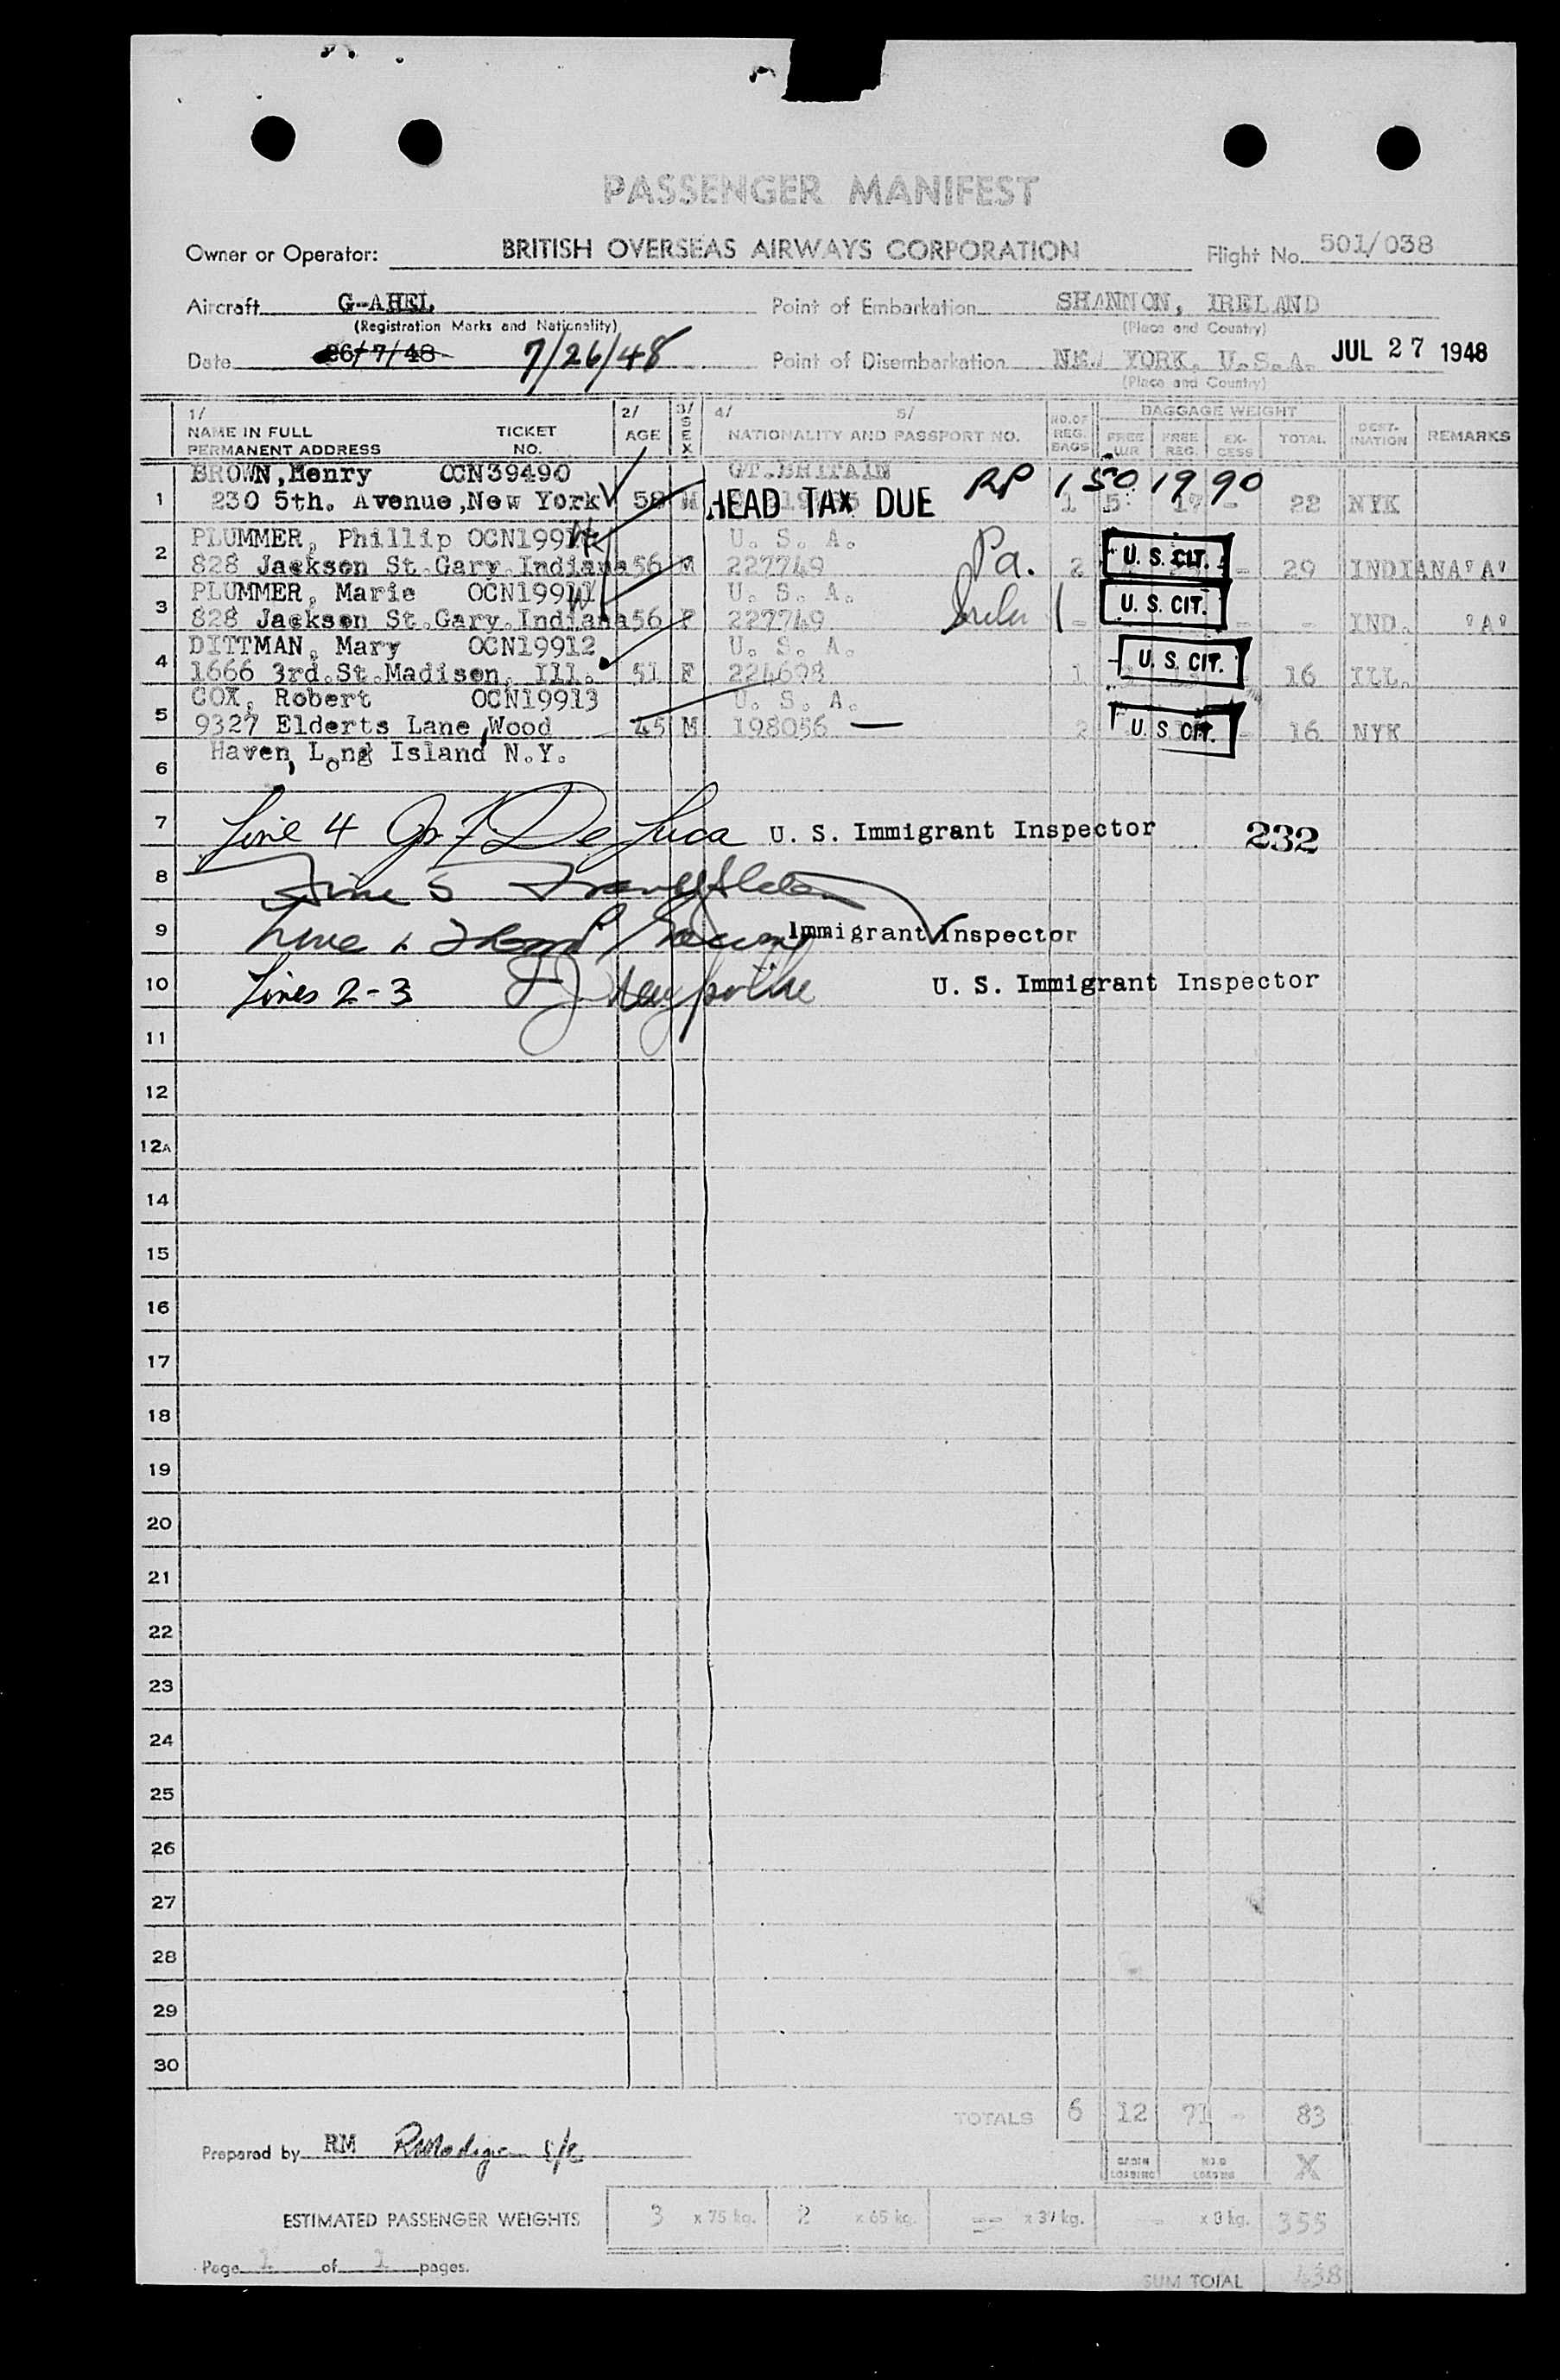 PASSENGER MANIFEST
Owner or Operator: BRITISH OVERSEAS AIRWAYS CORPORATION Flight No. 501/038
Aircraft G-AHEL Point of Embarkation SHANNON, IRELAND
(Registration Marks and Nationality) (Place and Country)
Date 26/7/48 7/26/48 Point of Disembarkation NEW YORK, U.S.A. JUL 27 1948
(Place and Country)
1/ 2/ 3/ 4/ 5/ BAGGAGE WEIGHT
NAME IN FULL TICKET AGE SEX NATIONALITY AND PASSPORT NO. NO. OF REG. BAGS FREE FREE REG. EX-CESS TOTAL DEST-INATION REMARKS
PERMANENT ADDRESS NO.
BROWN, Henry OCN39490 GT. BRITAIN RP 1501990
1 230 5th. Avenue, New York 58 M HEAD TAX DUE 1 5 17 - 22 NYK
PLUMMER, Phillip OCN1991 U. S. A. Pa.
2 828 Jackson St. Gary. Indiana 56 M 227749 2 U. S. CIT. - 29 INDIANA "A"
PLUMMER, Marie OCN1991 U. S. A.
3 828 Jackson St. Gary. Indiana 56 F 227749 - U. S. CIT. - - IND. "A"
DITTMAN, Mary OCN19912 U. S. A.
4 1666 3rd. St. Madison, Ill. 51 F 224698 1 U. S. CIT. 16 ILL.
COX, Robert OCN19913 U. S. A.
5 9327 Elderts Lane, Wood 45 M 198056 — 2 U. S. CIT. - 16 NYK
6 Haven, Long Island N.Y.
7 Line 4 De Luca U. S. Immigrant Inspector 232
8 Line 5
9 Line 1 Immigrant Inspector
10 Lines 2-3 U. S. Immigrant Inspector
11
12
12A
14
15
16
17
18
19
20
21
22
23
24
25
26
27
28
29
30
TOTALS 6 12 71 - 83
Prepared by RM X
ESTIMATED PASSENGER WEIGHTS 3 x 75 kg. 2 x 65 kg. - x kg. - x kg. 355
Page 1 of 1 pages.
SUM TOTAL 438